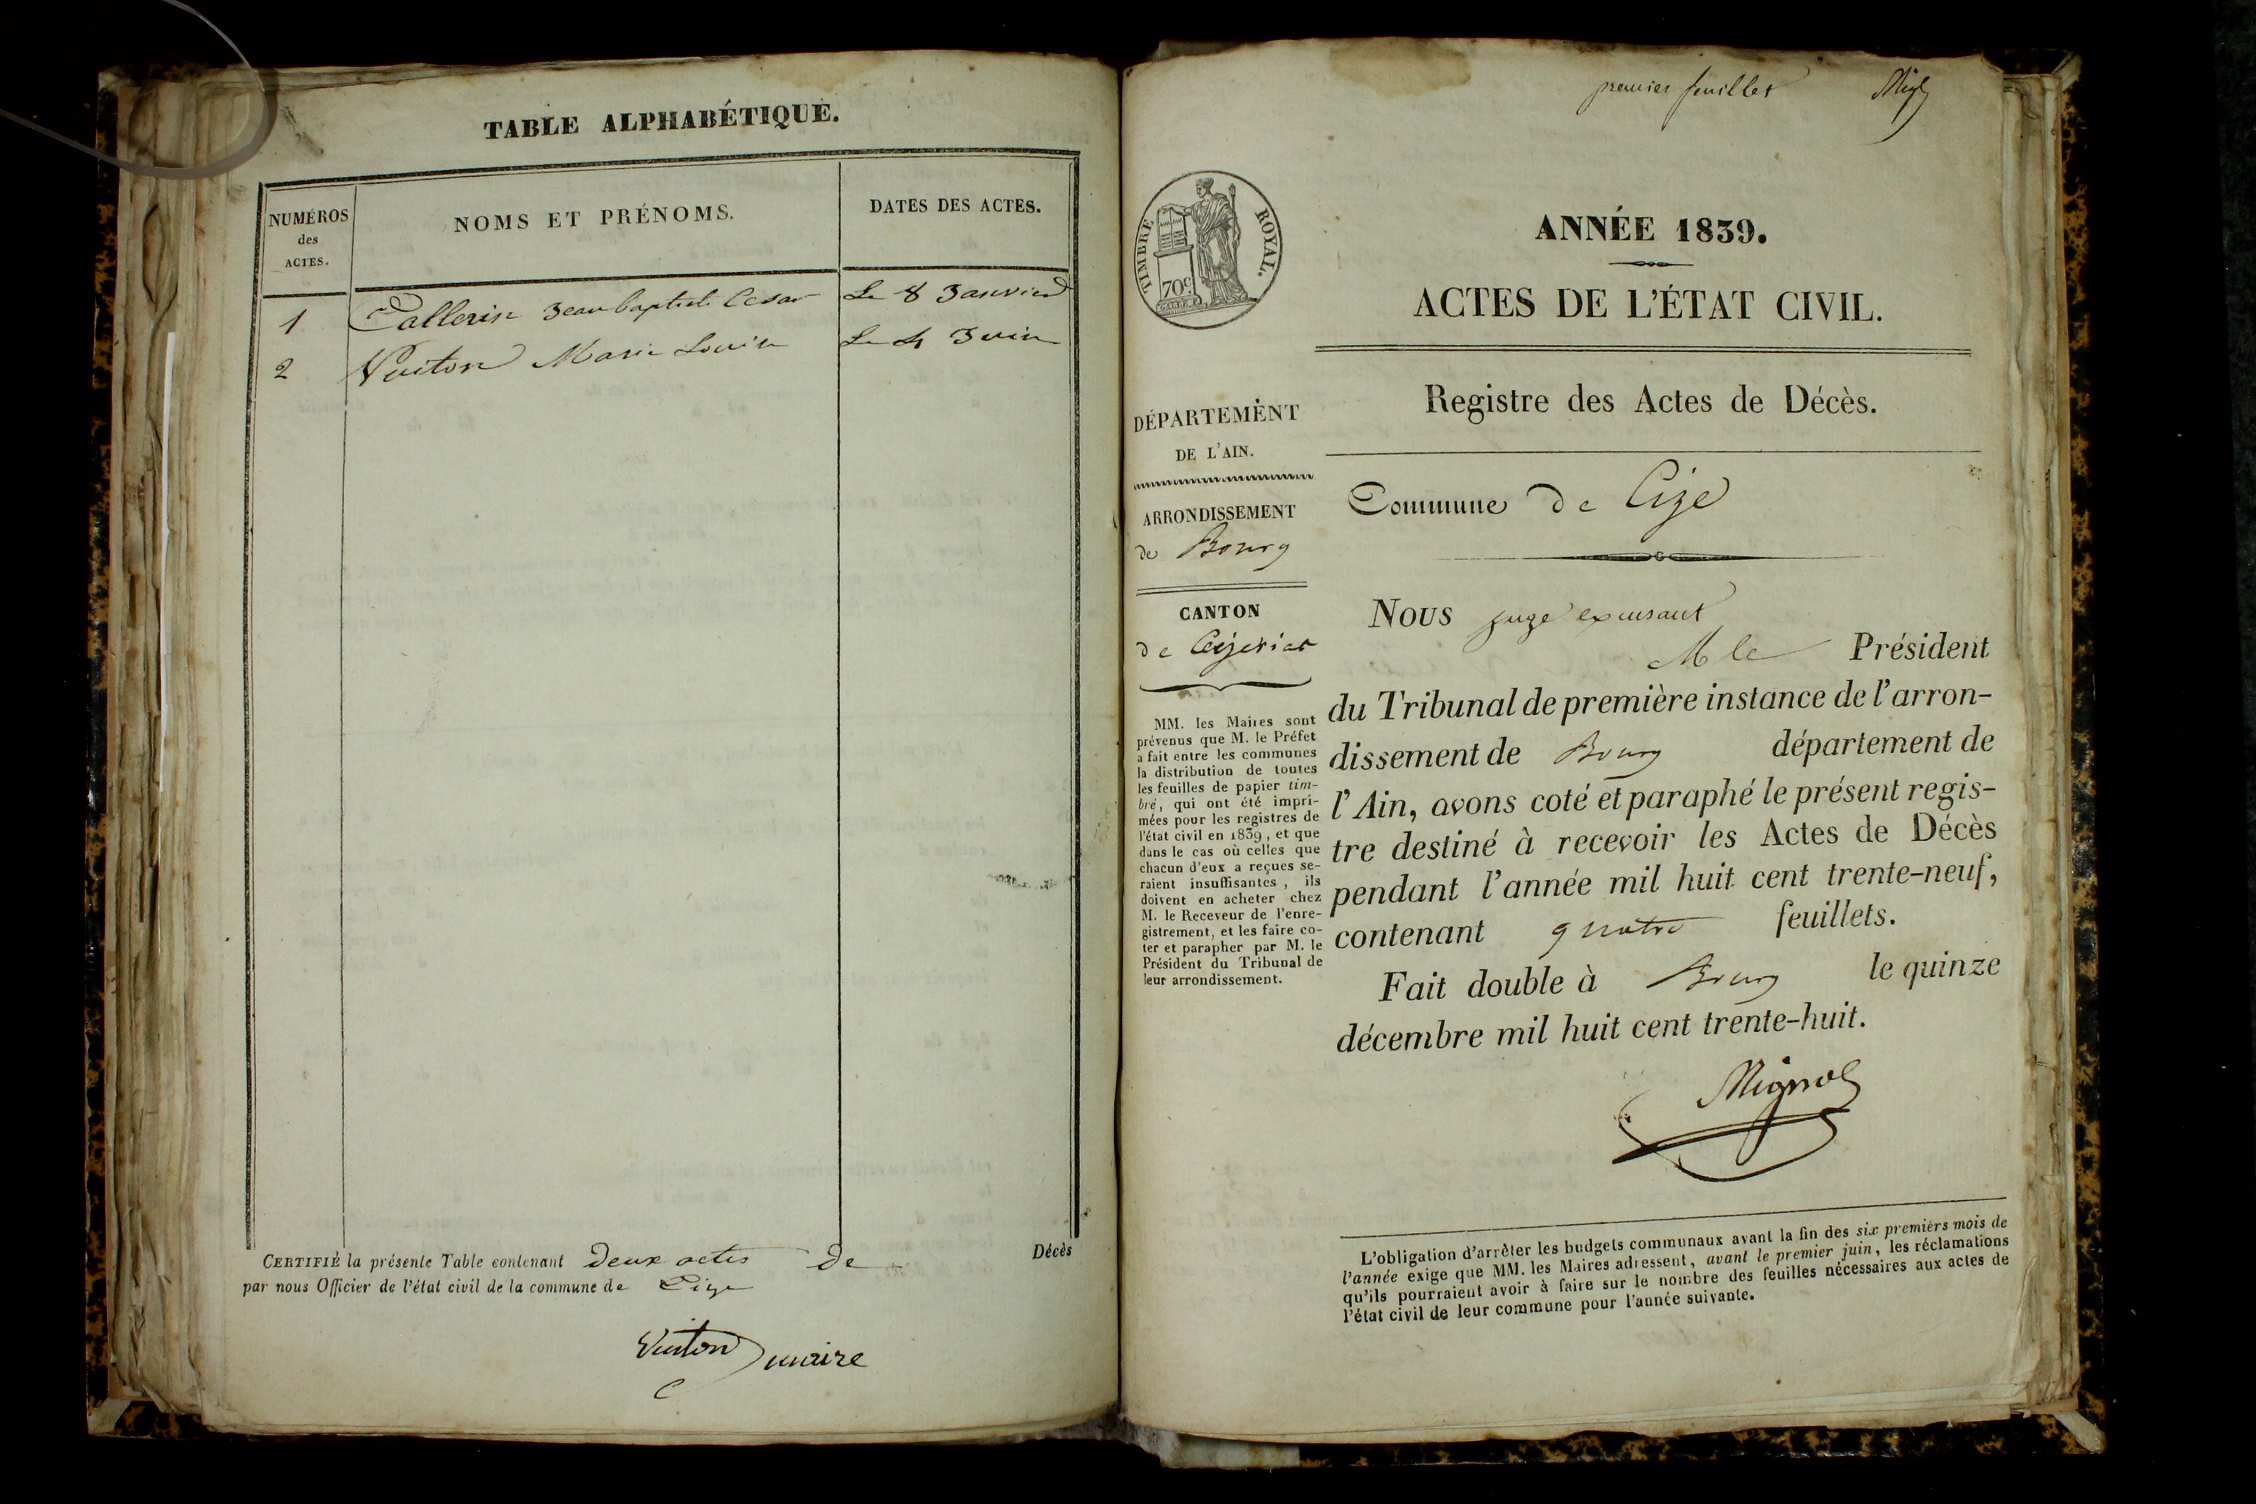 TABLE ALPHABÉTIQUE.
NUMÉROS
des
ACTES.
NOMS ET PRÉNOMS.
DATES DES ACTES.
1 Tallerin Jean baptiste Cesar Le 8 Janvier
2 Vuiton Marie Louise Le 4 Juin
CERTIFIÉ la présente Table contenant Deux actes de Décès
par nous Officier de l'état civil de la commune de Cize
Vuiton maire
premier feuillet
TIMBRE ROYAL.
70c
ANNÉE 1839.
ACTES DE L'ÉTAT CIVIL.
Registre des Actes de Décès.
DÉPARTEMENT
DE L'AIN.
ARRONDISSEMENT
de Bourg
CANTON
de Ceyzeriat
MM. les Maires sont
prévenus que M. le Préfet
a fait entre les communes
la distribution de toutes
les feuilles de papier tim-
bré, qui ont été impri-
mées pour les registres de
l'état civil en 1839, et que
dans le cas où celles que
chacun d'eux a reçues se-
raient insuffisantes, ils
doivent en acheter chez
M. le Receveur de l'enre-
gistrement, et les faire co-
ter et parapher par M. le
Président du Tribunal de
leur arrondissement.
Commune de Cize
NOUS juge
M le Président
du Tribunal de première instance de l'arron-
dissement de Bourg département de
l'Ain, avons coté et paraphé le présent regis-
tre destiné à recevoir les Actes de Décès
pendant l'année mil huit cent trente-neuf,
contenant quatre feuillets.
Fait double à Bourg le quinze
décembre mil huit cent trente-huit.
Mignot
L'obligation d'arrêter les budgets communaux avant la fin des six premiers mois de
l'année exige que MM. les Maires adressent, avant le premier juin, les réclamations
qu'ils pourraient avoir à faire sur le nombre des feuilles nécessaires aux actes de
l'état civil de leur commune pour l'année suivante.